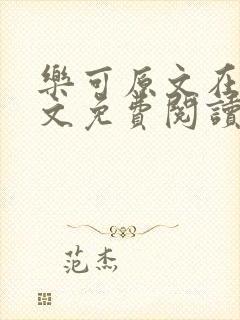 樂可原文在
文免費閱讀
范杰